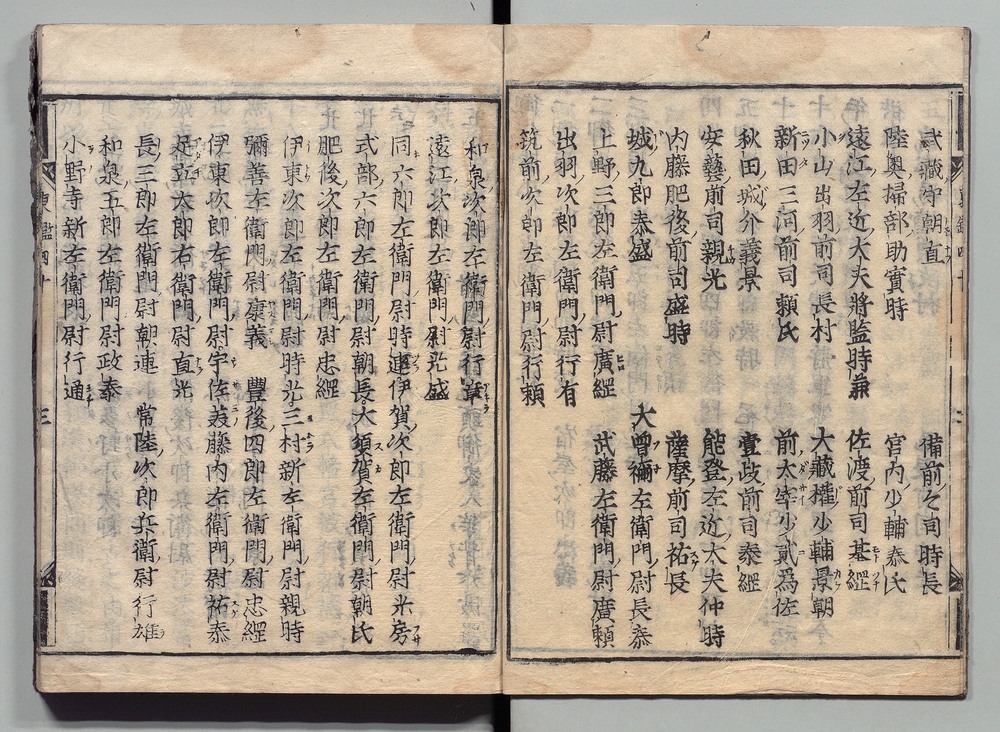 武藏守朝直　備前々司時長
陸奥掃部助實時　宮内少輔泰氏
遠江左近大夫將監時兼　佐渡前司基綱
小山出羽前司長村　大藏權少輔景朝
新田三河前司頼氏　前太宰少貳為佐
秋田城介義景　壹岐前司泰綱
安藝前司親光　能登左近大夫仲時
内藤肥後前司盛時　薩摩前司祐長
城九郎泰盛　大曽禰左衛門尉長泰
上野三郎左衛門尉廣綱　武藤左衛門尉廣頼
出羽次郎左衛門尉行有
筑前次郎左衛門尉行頼
和泉次郎左衛門尉行章
遠江次郎左衛門尉光盛
同六郎左衛門尉時連　伊賀次郎左衛門尉光房
式部六郎左衛門尉朝長　大須賀左衛門尉朝氏
肥後次郎左衛門尉忠綱
伊東次郎左衛門尉時光　三村新左衛門尉親時
彌善左衛門尉康義　豊後四郎左衛門尉忠綱
伊東次郎左衛門尉　宇佐美藤内左衛門尉祐泰
足立太郎右衛門尉直光
長三郎左衛門尉朝連　常陸次郎兵衛尉行雄
和泉五郎左衛門尉政泰
小野寺新左衛門尉行通
東鑑四十
三